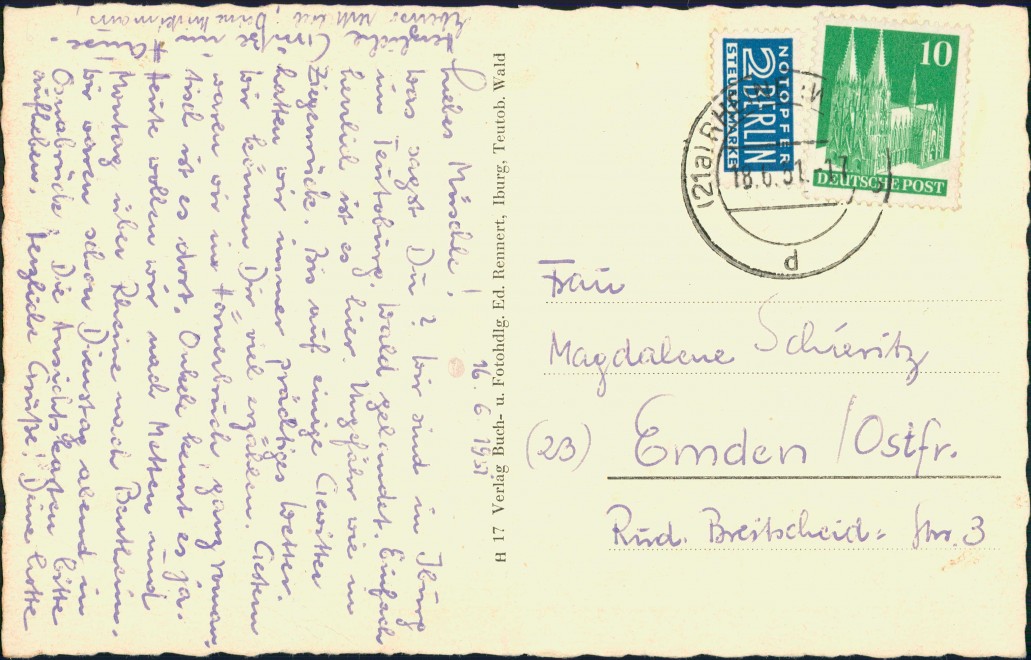 16. 6. 1951
Liebes Müschle!
Was sagst Du? Wir sind in Iburg
im Teutoburg. Wald gelandet. Einfach
herrlich ist es hier. Ungefähr wie in
Ziegenrück. Bis auf einige Gewitter
hatten wir immer prächtiges Wetter.
Wir können Dir viel erzählen. Gestern
waren wir im Hornerbruch ganz roman=
tisch ist es dort. Onkel kennt es ja.
Heute wollen wir nach Metten und
Montag über Rheine nach Bentheim.
Wir wären schon Dienstag abend in
Osnabrück. Die Ansichtskarten bitte
aufheben. Herzliche Grüße! Deine Lotte
Ebenso herzliche Grüße
H 17 Verlag Buch- u. Fotohdlg. Ed. Rennert, Iburg, Teutob. Wald
NOTOPFER
2 BERLIN
STEUERMARKE
10
DEUTSCHE POST
(21a) RHEINE
18.6.51.-17
d
Frau
Magdalene Schieritz
(23) Emden /Ostfr.
Rud. Breitscheid= Str. 3